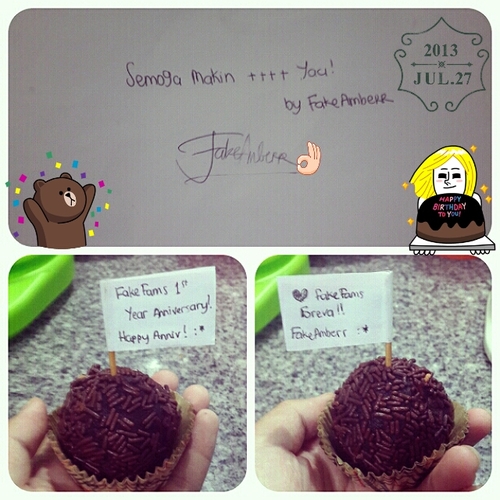 2013
JUL.27
Semoga Makin ++++ You!
by FakeAmberr
FakeAmberr
HAPPY
BIRTHDAY
TO YOU!
FakeFams 1st
Year Anniversary!
Happy Anniv! :*
♥ FakeFams
Foreva!!
FakeAmberr :*